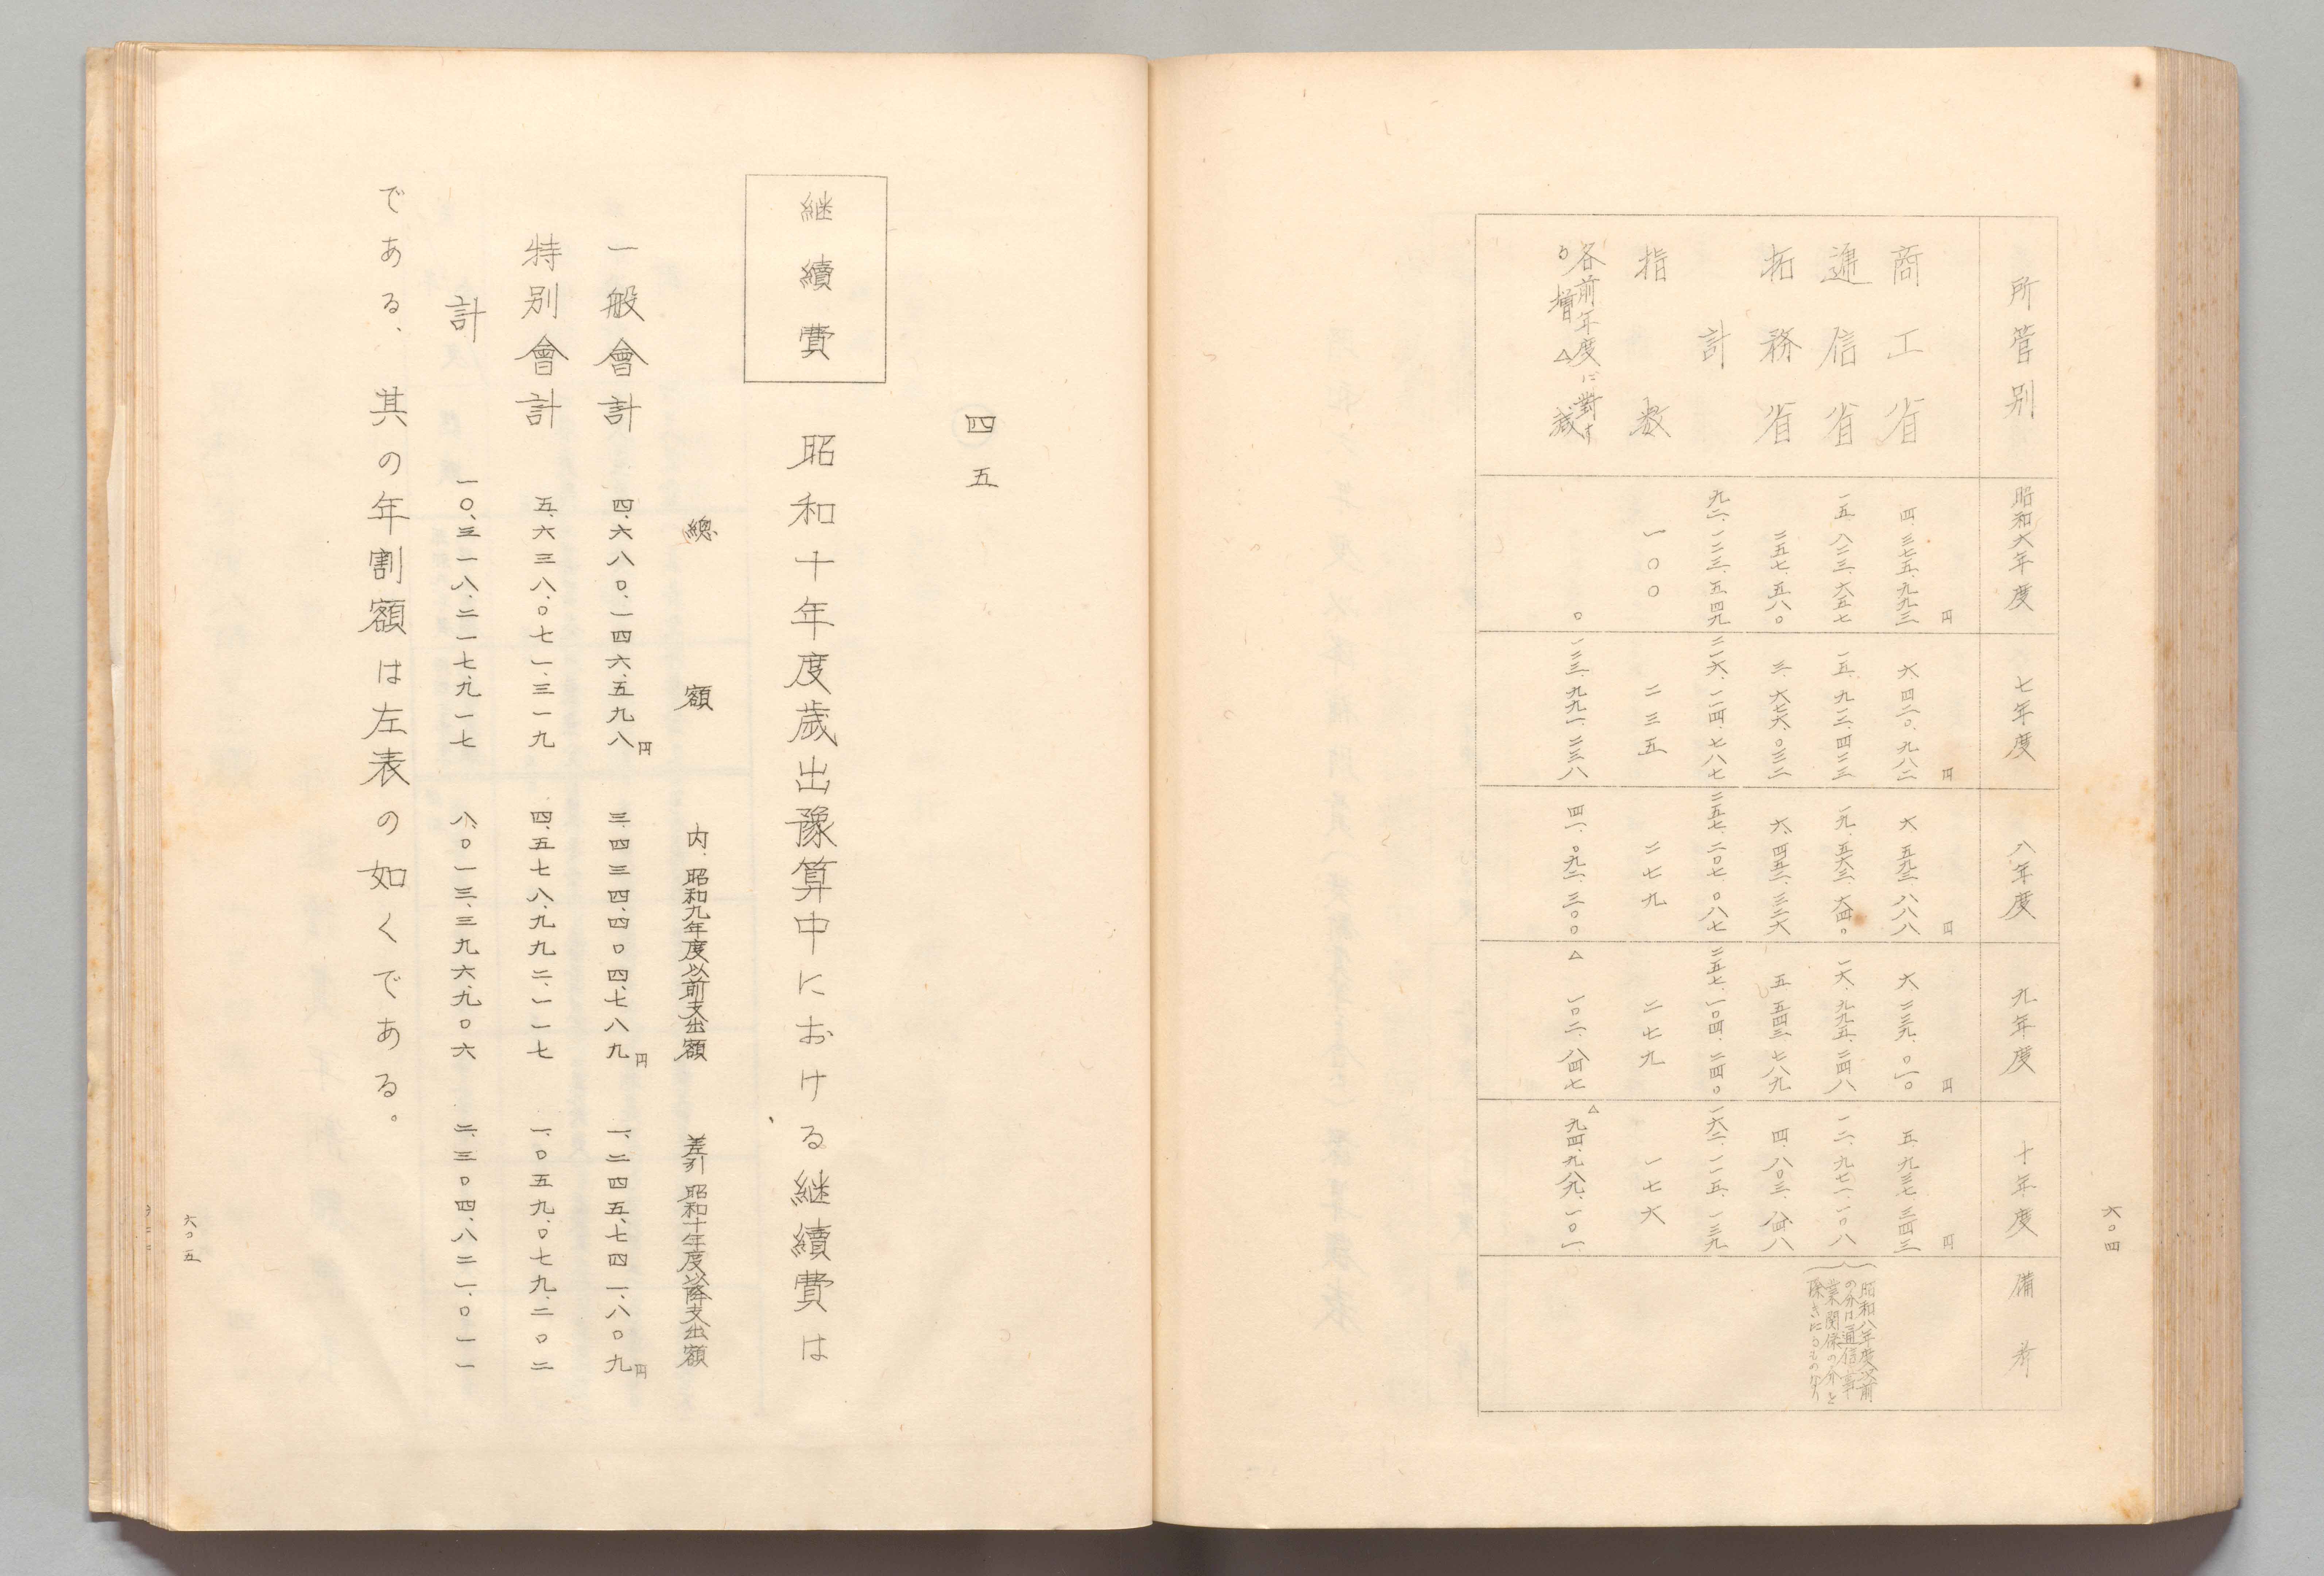 六〇四
所管別 昭和六年度 七年度 八年度 九年度 十年度 備考
円 円 円 円 円
商工省 四、三七五、九九三 六、四二〇、九八二 六、五九三、八八八 六、二三九、〇一〇 五、九三七、三四三
逓信省 一五、八二三、六五七 一五、九一三、四二三 一九、五六三、六四〇 一六、九九五、二四八 一二、九七一、一〇八
昭和八年度以前
の分は通信事
業関係の分を
除きたるものなり
拓務省 二五七、五八〇 三、六七六、〇三二 六、四五二、三二六 五、五四三、七八九 四、八〇三、八四八
計 九二、一二三、五四九 二一六、一一四、七八七 二五七、二〇七、〇八七 二五七、一〇四、二四〇 一六二、一一五、一三九
指数 一〇〇 二三五 二七九 二七九 一七六
各前年度に對す
る増△減 〇 一二三、九九一、二三八 四一、〇九二、三〇〇 △一〇二、八四七 △九四、九八九、一〇一
四五
継續費
昭和十年度歳出豫算中における継續費は
總額 内、昭和九年度以前支出額 差引昭和十年度以降支出額
一般會計 四、六八〇、一四六、五九八円 三、四三四、四〇四、七八九円 一、二四五、七四一、八〇九円
特別會計 五、六三八、〇七一、三一九 四、五七八、九九二、一一七 一、〇五九、〇七九、二〇二
計 一〇、三一八、二一七、九一七 八、〇一三、三九六、九〇六 二、三〇四、八二一、〇一一
である、其の年割額は左表の如くである。
六〇五